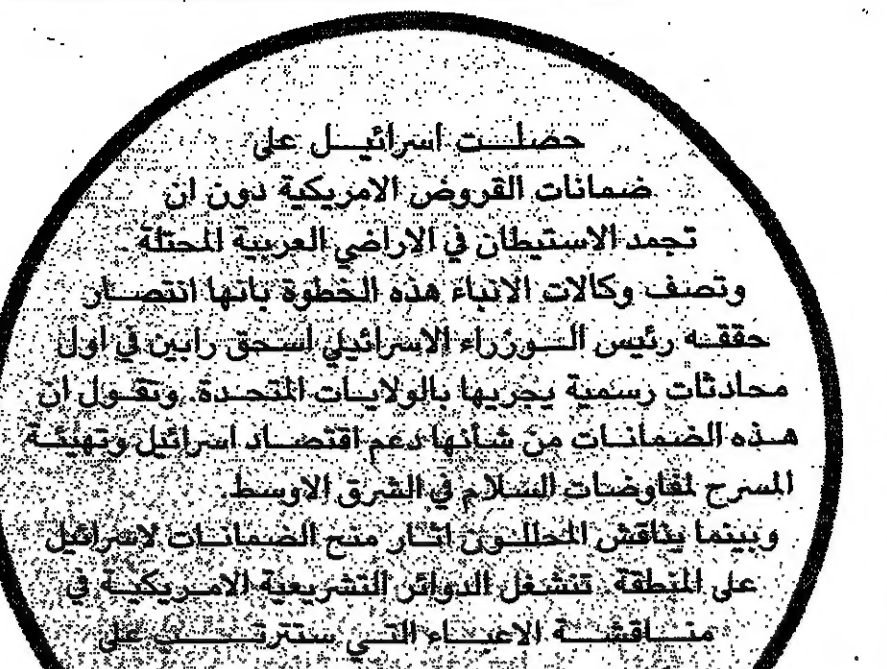 حصلت اسرائيل على
ضمانات القروض الامريكية دون ان
تجمد الاستيطان في الاراضي العربية المحتلة
وتصف وكالات الانباء هذه الخطوة بانها انتصار
حققه رئيس الوزراء الاسرائيلي اسحق رابين في اول
محادثات رسمية يجريها بالولايات المتحدة. وتقول ان
هذه الضمانات من شأنها دعم اقتصاد اسرائيل وتهيئة
المسرح لمفاوضات السلام في الشرق الاوسط.
وبينما يناقش المحللون اثار منح الضمانات لاسرائيل
على المنطقة تنشغل الدوائر التشريعية الامريكية في
مناقشة الاعباء التي ستترتب على